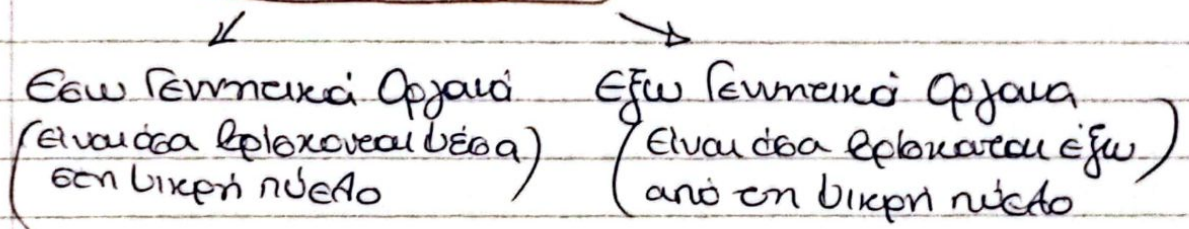 Εσω Γεννητικά Οργανά
(Είναι όσα βρίσκονται μέσα
στη μικρή πύελο)
Εξω Γεννητικά Οργανα
(Είναι όσα βρίσκονται έξω
από τη μικρή πύελο)